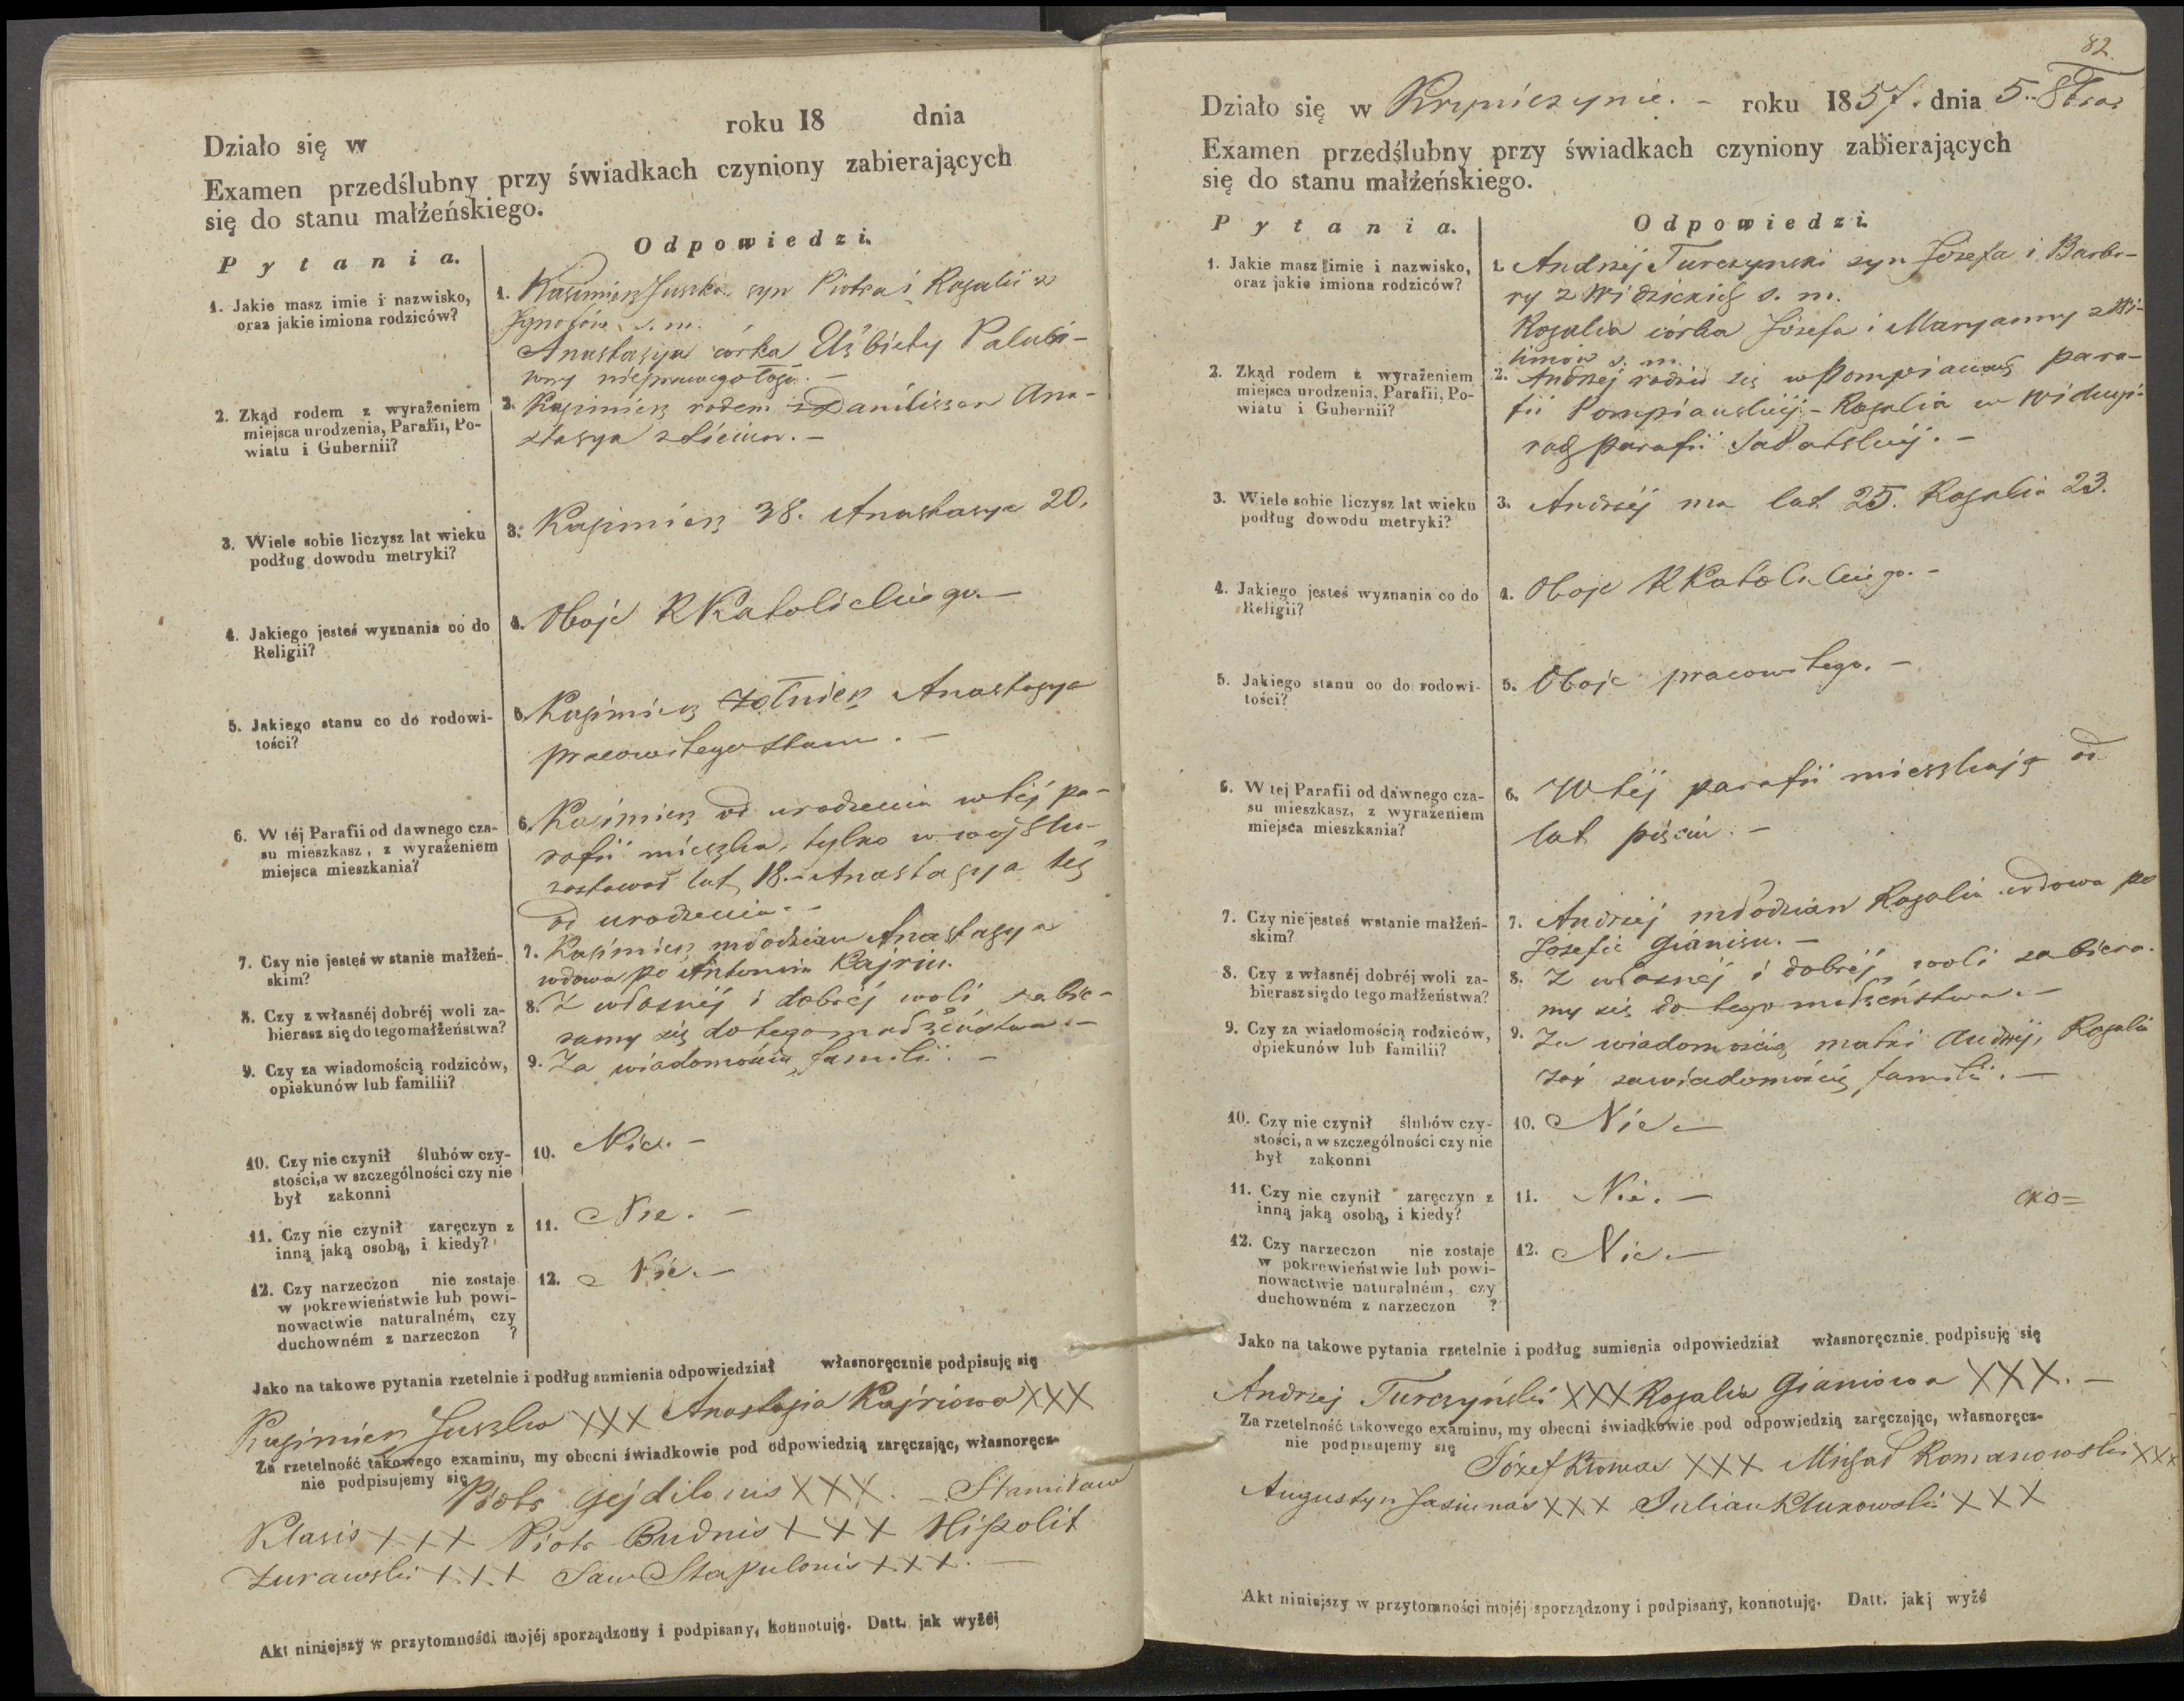 Działo się w roku 18 dnia
Examen przedślubny przy świadkach czyniony zabierających
się do stanu małżeńskiego.
Pytania.
Odpowiedzi.
1. Jakie masz imie i nazwisko,
oraz jakie imiona rodziców?
1. Kazimierz Juszko syn Piotra i Rozalii z
s. m.
Anastazya córka Elżbiety
nieprawego łoża. –
2. Zkąd rodem z wyrażeniem
miejsca urodzenia, Parafii, Po-
wiatu i Gubernii?
2. Kazimierz rodem z Daniliszon Ana-
stazya z –
3. Wiele sobie liczysz lat wieku
podług dowodu metryki?
3. Kazimierz 38. Anastazya 20.
4. Jakiego jesteś wyznania co do
Religii?
4. Oboje RKatolickiego. –
5. Jakiego stanu co do rodowi-
tości?
5. Kazimierz żołnierz Anastazya
pracowitego stanu. –
6. W téj Parafii od dawnego cza-
su mieszkasz, z wyrażeniem
miejsca mieszkania?
6. Kazimierz od urodzenia w téj pa-
rafii mieszka, tylko w wojsku
zostawał lat 18. – Anastazya też
od urodzenia. –
7. Czy nie jesteś w stanie małżeń-
skim?
7. Kazimierz młodzian Anastazya
wdowa po Antonim Kajriu.
8. Czy z własnéj dobréj woli za-
bierasz się do tego małżeństwa?
8. Z własnéj i dobréj woli zabie-
ramy się do tego małżeństwa. –
9. Czy za wiadomością rodziców,
opiekunów lub familii?
9. Za wiadomością familii. –
10. Czy nie czynił ślubów czy-
stości, a w szczególności czy nie
był zakonni
10. Nie. –
11. Czy nie czynił zaręczyn z
inną jaką osobą, i kiedy?
11. Nie. –
12. Czy narzeczon nie zostaje
w pokrewieństwie lub powi-
nowactwie naturalném, czy
duchowném z narzeczon ?
12. Nie. –
Jako na takowe pytania rzetelnie i podług sumienia odpowiedział własnoręcznie podpisuję się
Kazimierz Juszko XXX Anastazia Kajriowa XXX
Za rzetelność takowego examinu, my obecni świadkowie pod odpowiedzią zaręczając, własnoręcz-
nie podpisujemy się
Piotr Gejdilonis XXX. – Stanisław
Klasis XXX Piotr Budnis XXX Hipolit
Żurawski XXX Jan Stapulonis XXX. –
Akt niniejszy w przytomności mojéj sporządzony i podpisany, konnotuję. Datt. jak wyżéj
82
Działo się w Kryniczynie. – roku 1857. dnia 5.
Examen przedślubny przy świadkach czyniony zabierających
się do stanu małżeńskiego.
Pytania.
Odpowiedzi.
1. Jakie masz imie i nazwisko,
oraz jakie imiona rodziców?
1. Andrzéj Turczynski syn Józefa i Barba-
ry z s. m.
Rozalia córka Józefa i Maryanny z
s. m.
2. Zkąd rodem z wyrażeniem
miejsca urodzenia, Parafii, Po-
wiatu i Gubernii?
2. Andrzéj rodził się w Pompianach para-
fii Pompianskiéj. – Rozalia w
parafii Sadotskiéj. –
3. Wiele sobie liczysz lat wieku
podług dowodu metryki?
3. Andrzéj ma lat 25. Rozalia 23.
4. Jakiego jesteś wyznania co do
Religii?
4. Oboje RKatolickiego. –
5. Jakiego stanu co do rodowi-
tości?
5. Oboje pracowitego. –
6. W tej Parafii od dawnego cza-
su mieszkasz, z wyrażeniem
miejsca mieszkania?
6. W téj parafii mieszkają od
lat pięciu. –
7. Czy nie jesteś w stanie małżeń-
skim?
7. Andrzéj młodzian Rozalia wdowa po
Józefie Gianisu. –
8. Czy z własnéj dobréj woli za-
bierasz się do tego małżeństwa?
8. Z własnéj i dobréj woli zabiera-
my się do tego małżeństwa. –
9. Czy za wiadomością rodziców,
opiekunów lub familii?
9. Za wiadomością matki Andrzéj, Rozalia
zaś za wiadomością familii. –
10. Czy nie czynił ślubów czy-
stości, a w szczególności czy nie
był zakonni
10. Nie. –
11. Czy nie czynił zaręczyn z
inną jaką osobą, i kiedy?
11. Nie. –
12. Czy narzeczon nie zostaje
w pokrewieństwie lub powi-
nowactwie naturalném, czy
duchowném z narzeczon ?
12. Nie. –
Jako na takowe pytania rzetelnie i podług sumienia odpowiedział własnoręcznie podpisuję się
Andrzej Turczyński XXX Rozalia Gianiowa XXX. –
Za rzetelność takowego examinu, my obecni świadkowie pod odpowiedzią zaręczając, własnoręcz-
nie podpisujemy się
Józef XXX Michał Romanowski XXX
Augustyn Jasiunas XXX Julian XXX
Akt niniejszy w przytomności mojéj sporządzony i podpisany, konnotuję. Datt. jak wyżé